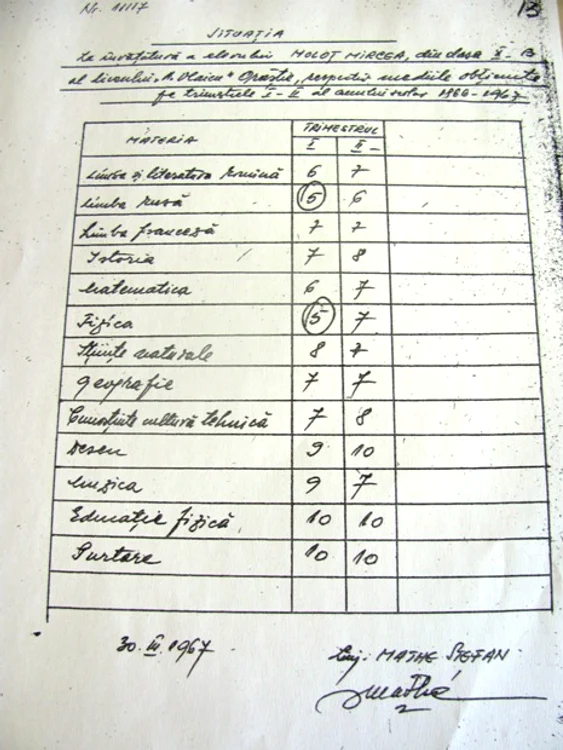 Nr. 11117
13
SITUAȚIA
La învățătură a elevului MOLOȚ MIRCEA, din clasa X-B
al liceului "A. Vlaicu" Orăștie, respectiv mediile obținute
pe trimestrele I-II al anului școlar 1966-1967
MATERIA TRIMESTRUL
I II
Limba și literatura Romînă 6 7
Limba Rusă 5 6
Limba franceză 7 7
Istoria 7 8
Matematica 6 7
Fizica 5 7
Științe naturale 8 7
Geografie 7 7
Cunoștințe cultură tehnică 7 8
Desen 9 10
Muzica 9 7
Educație fizică 10 10
Purtare 10 10
30.III.1967
MATHE ȘTEFAN
Mathe